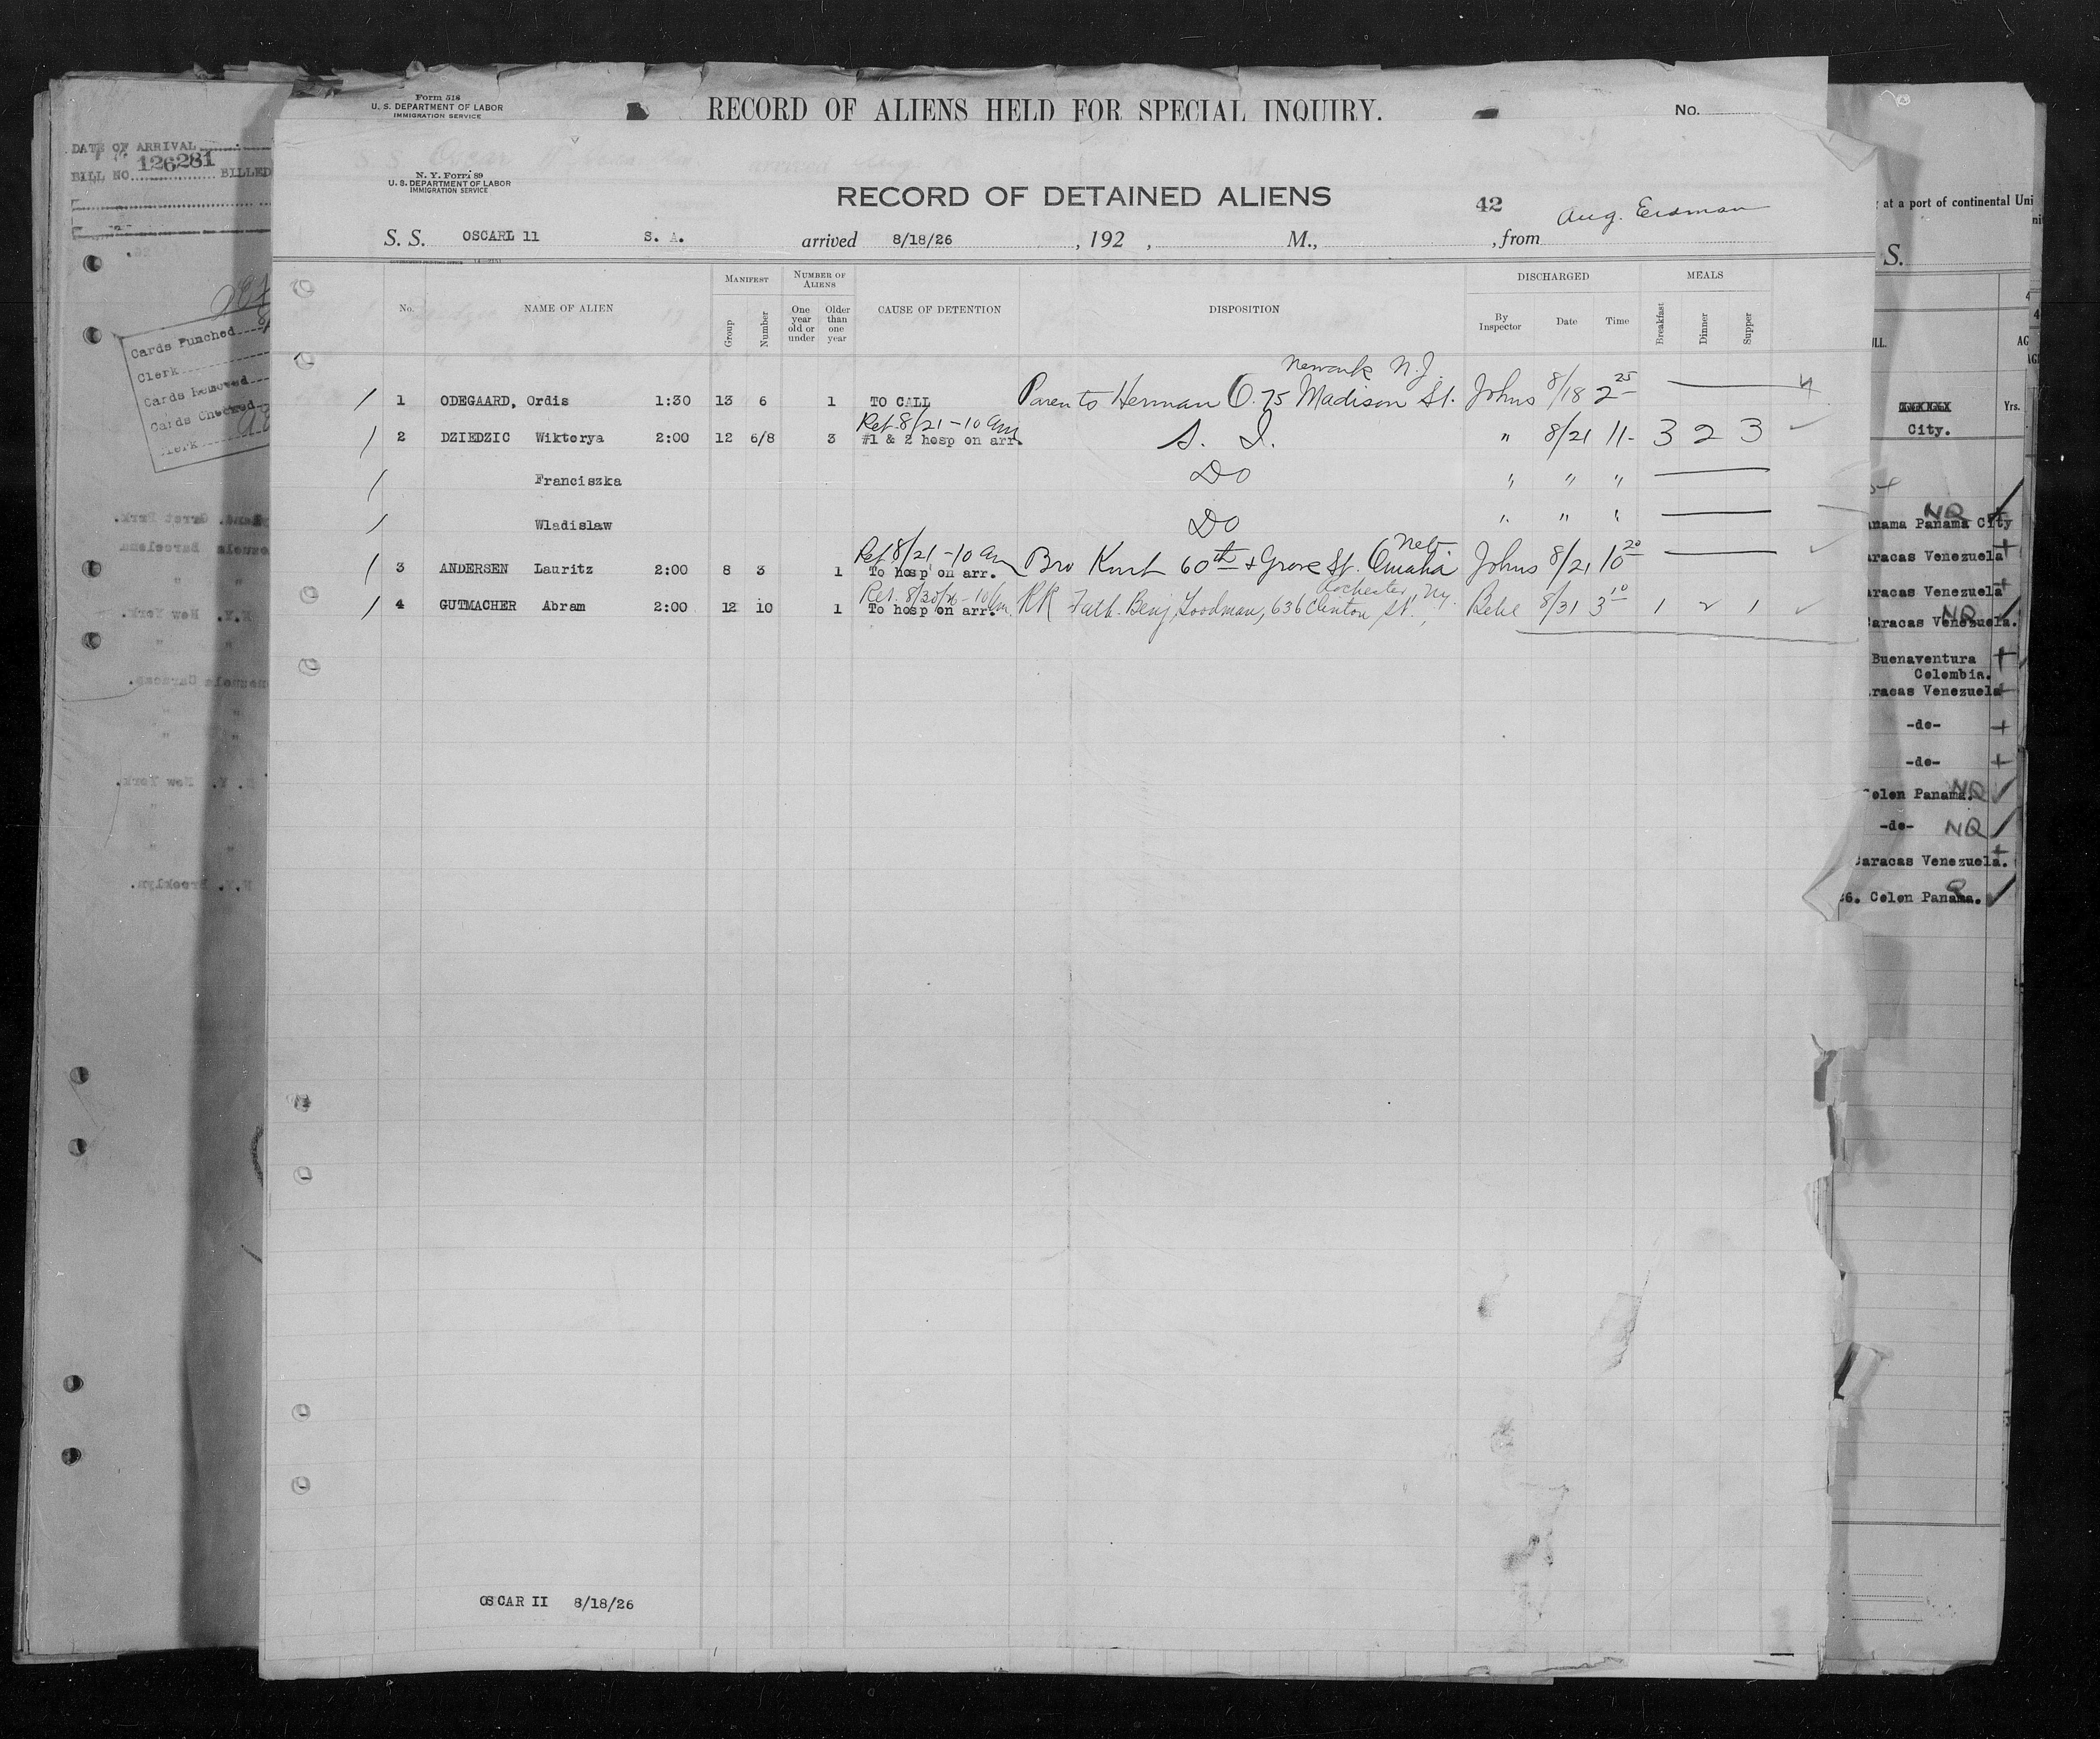 Form 518
U. S. DEPARTMENT OF LABOR
IMMIGRATION SERVICE
RECORD OF ALIENS HELD FOR SPECIAL INQUIRY.
No.
DATE OF ARRIVAL
BILL NO. 126281 BILLED
Cards Punched
Clerk
Cards Removed
Cards Checked
Clerk
N. Y. Form 89
U. S. DEPARTMENT OF LABOR
IMMIGRATION SERVICE
RECORD OF DETAINED ALIENS
42
Aug. Erdman
S. S. OSCARL 11 S. A. arrived 8/18/26, 192 , M., , from
No. NAME OF ALIEN MANIFEST Group Number NUMBER OF ALIENS One year old or under Older than one year CAUSE OF DETENTION DISPOSITION DISCHARGED By Inspector Date Time MEALS Breakfast Dinner Supper
Newark N.J.
/ 1 ODEGAARD, Ordis 1:30 13 6 1 TO CALL Parents Herman O. 75 Madison St. Johns 8/18 2 25
Ret 8/21 - 10 am
/ 2 DZIEDZIC Wiktorya 2:00 12 6/8 3 #1 & 2 hosp on arr. S. I. " 8/21 11- 3 2 3 ✓
/ Franciszka Do " " "
/ Wladislaw Do " " "
Ret 8/21 - 10 am Neb
/ 3 ANDERSEN Lauritz 2:00 8 3 1 To hosp on arr. Bro Knut 60th & Grove St. Omaha Johns 8/21 10 20 ✓
Ret. 8/30/26 - 10 am Rochester, Ny.
/ 4 GUTMACHER Abram 2:00 12 10 1 To hosp on arr. RR Fath. Benj Goodman, 636 Clinton St., 8/31 3 10 1 2 1 ✓
OSCAR II 8/18/26
at a port of continental Uni
S.
Yrs.
City.
NQ
anama Panama City
aracas Venezuela
aracas Venezuela
NQ
Caracas Venezuela.
Buenaventura
Colombia.
aracas Venezuela
-do-
-do-
Colon Panama. NQ
-do- NQ
Caracas Venezuela.
26. Colon Panama.